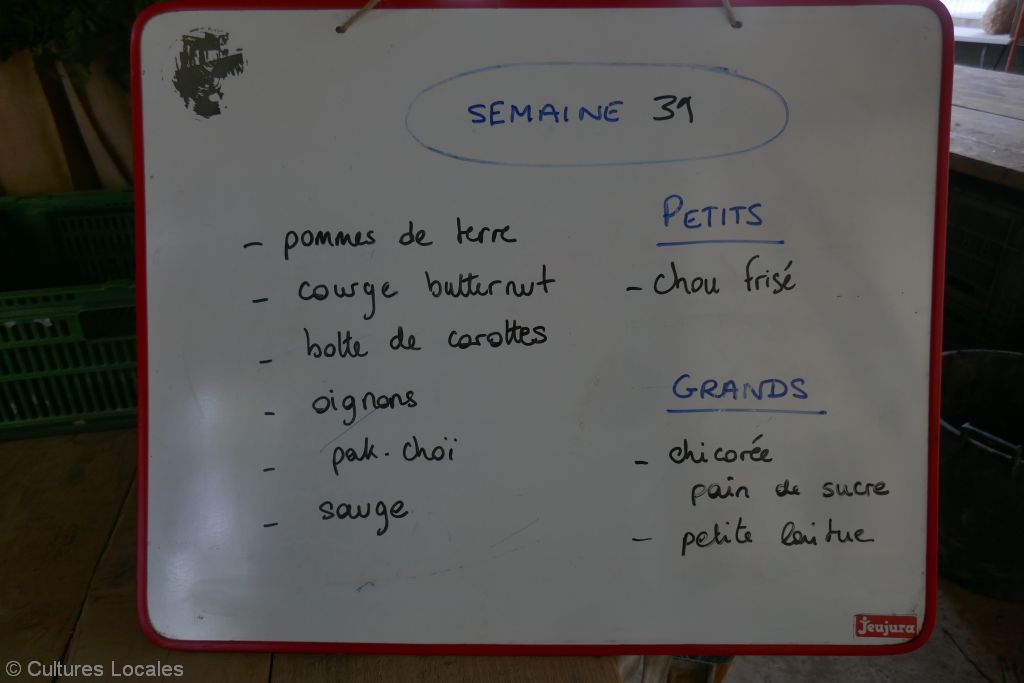 SEMAINE 39
- pommes de terre
- courge butternut
- botte de carottes
- oignons
- pak-choï
- sauge
PETITS
- chou frisé
GRANDS
- chicorée
pain de sucre
- petite laitue
Jeujura
© Cultures Locales